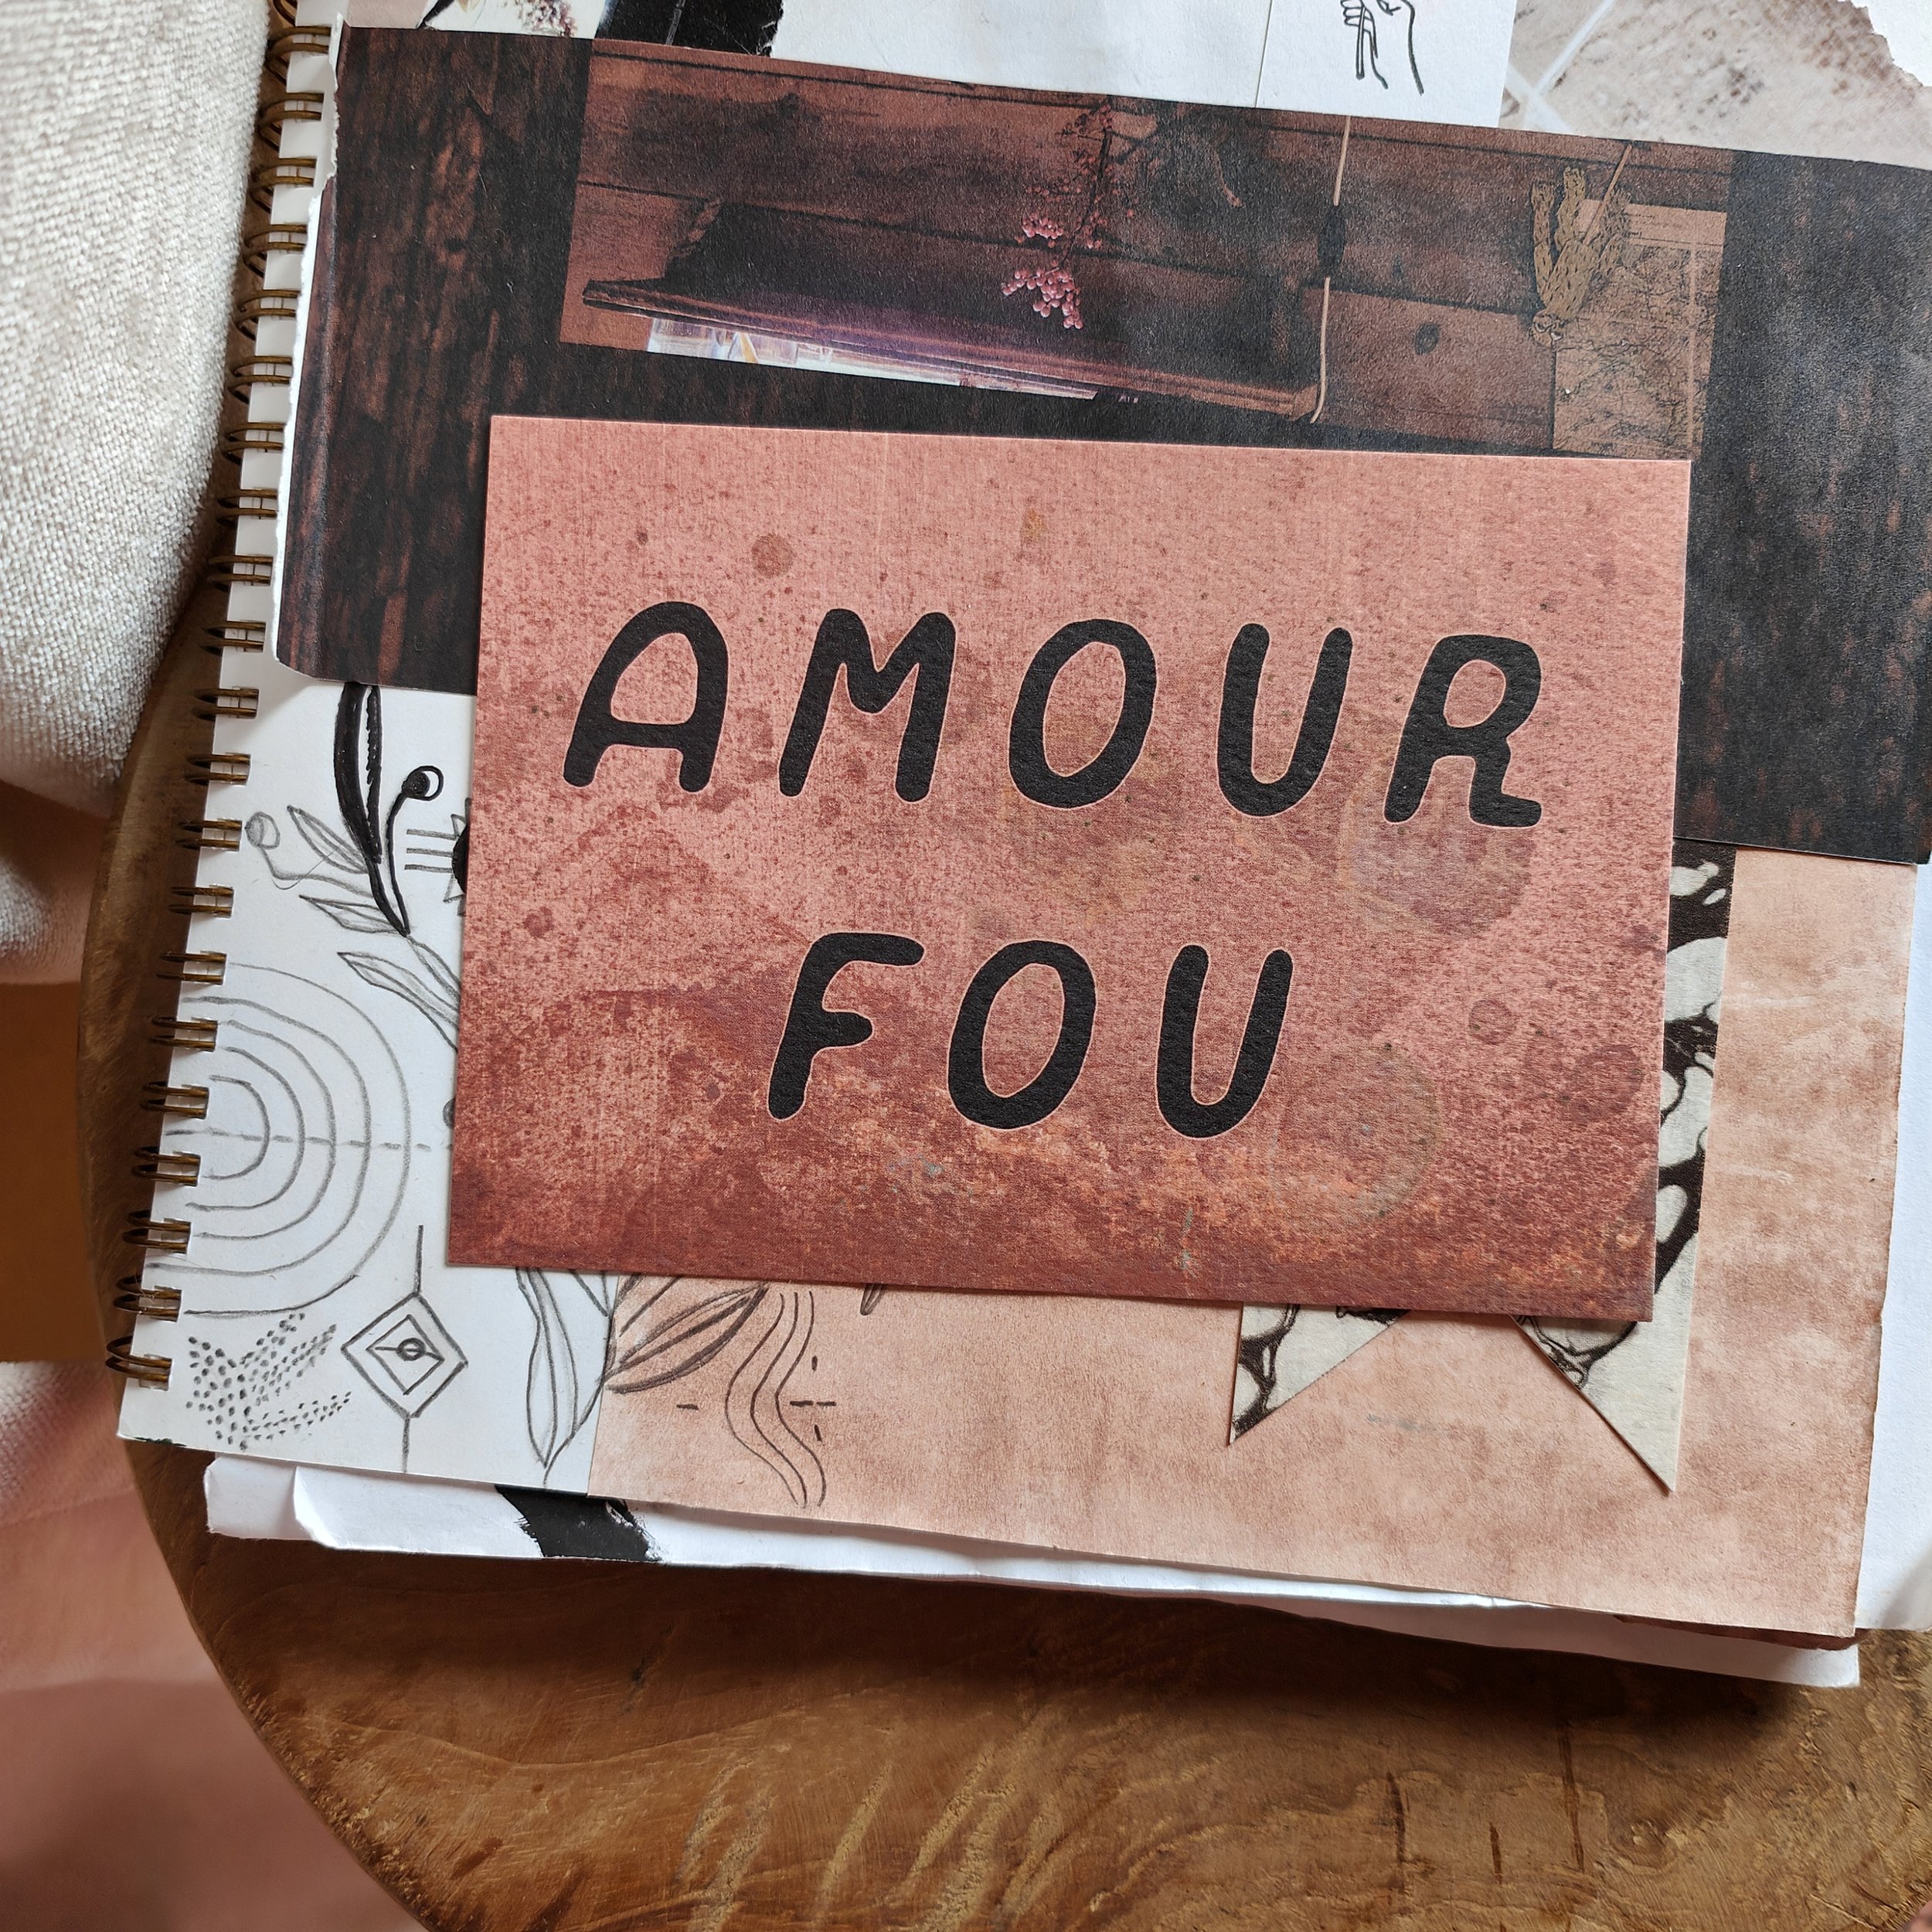 AMOUR
FOU